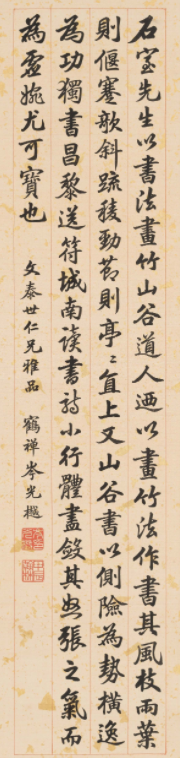 石室先生以書法畫竹山谷道人迺以畫竹法作書其風枝雨葉
則偃蹇欹斜疏稜勁節則亭〻直上又山谷書以側險為勢橫逸
為功獨書昌黎送符城南讀書詩小行體盡斂其怒張之氣而
為虛婉尤可寶也
文泰世仁兄雅品 鶴禪岑光樾